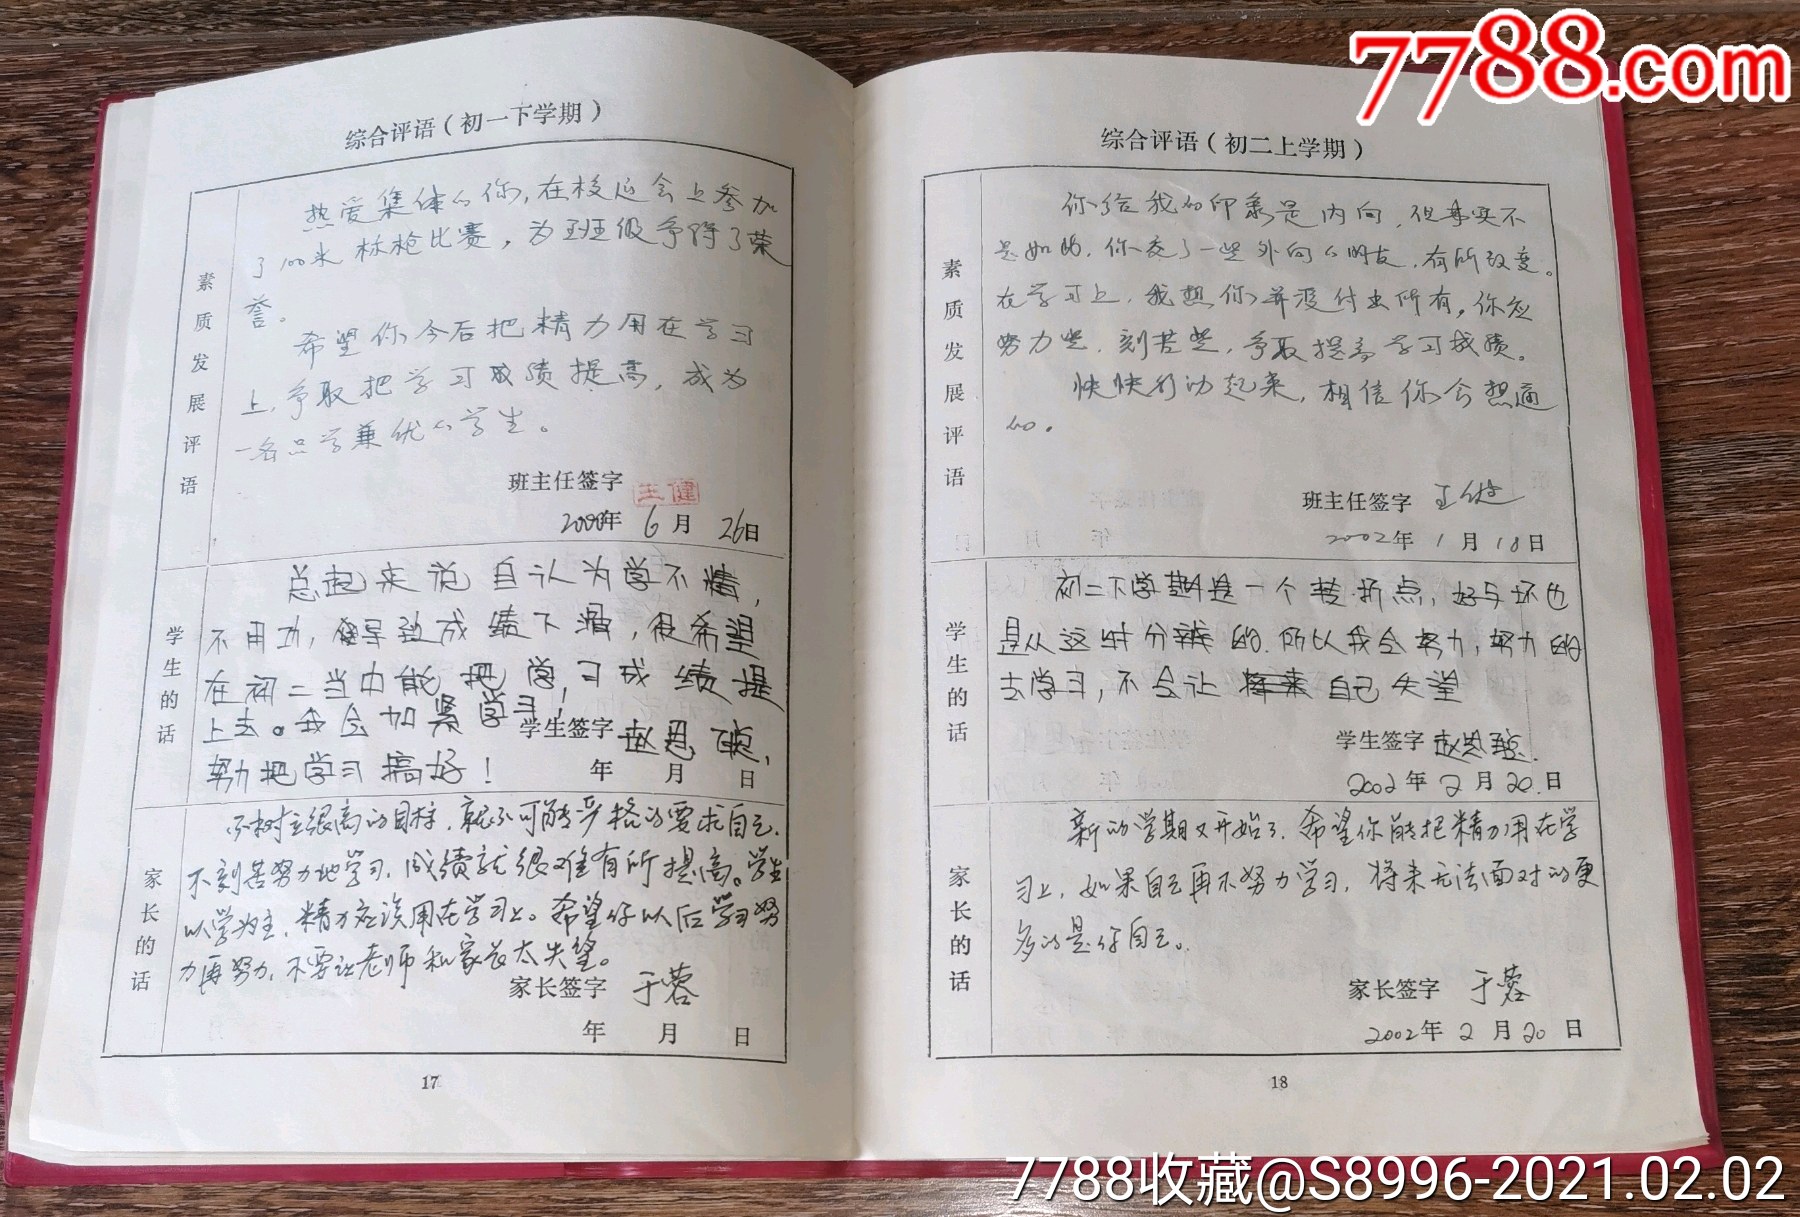 7788.com
综合评语(初一下学期)
素质发展评语
热爱集体的你,在校运会上参加
了100米标枪比赛,为班级争得了荣
誉。
希望你今后把精力用在学习
上,争取把学习成绩提高,成为
一名品学兼优的学生。
班主任签字 王健
2000年 6月 26日
学生的话
总起来说自认为学不精,
不用功,导致成绩下滑,很希望
在初二当中能把学习成绩提
上去。我会加紧学习,
努力把学习搞好!
学生签字 赵思
年 月 日
家长的话
不树立很高的目标,就不可能严格的要求自己,
不刻苦努力地学习,成绩就很难有所提高。学生
以学为主,精力应该用在学习上。希望你以后学习努
力再努力,不要让老师和家长太失望。
家长签字 于蓉
年 月 日
17
综合评语(初二上学期)
素质发展评语
你给我的印象是内向,但事实不
是如此,你交了一些外向的朋友,有所改变。
在学习上,我想你并没付出所有,你应
努力些,刻苦些,争取提高学习成绩。
快快行动起来,相信你会想通
的。
班主任签字 王健
2002年 1月 18日
学生的话
初二下学期是一个转折点,好与坏也
是从这时分辨的.所以我会努力,努力的
去学习,不会让将来自己失望
学生签字 赵思
2002年 2月 20.日
家长的话
新的学期又开始了,希望你能把精力用在学
习上,如果自己再不努力学习,将来无法面对的更
多的是你自己。
家长签字 于蓉
2002年 2月 20日
18
7788收藏@S8996-2021.02.02